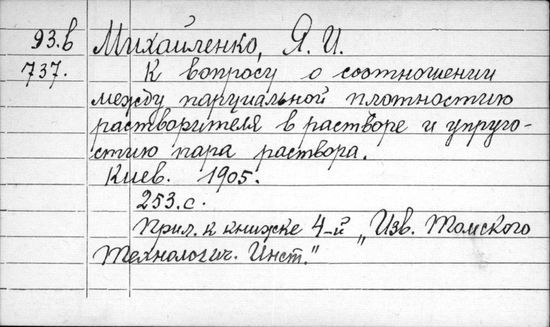 93.в Михайленко, Я. И.
737. К вопросу о соотношении
между парциальной плотностию
растворителя в растворе и упруго-
стию пара раствора.
Киев. 1905.
253.с.
Прил. к книжке 4-й „Изв. Томского
Технологич. Инст."